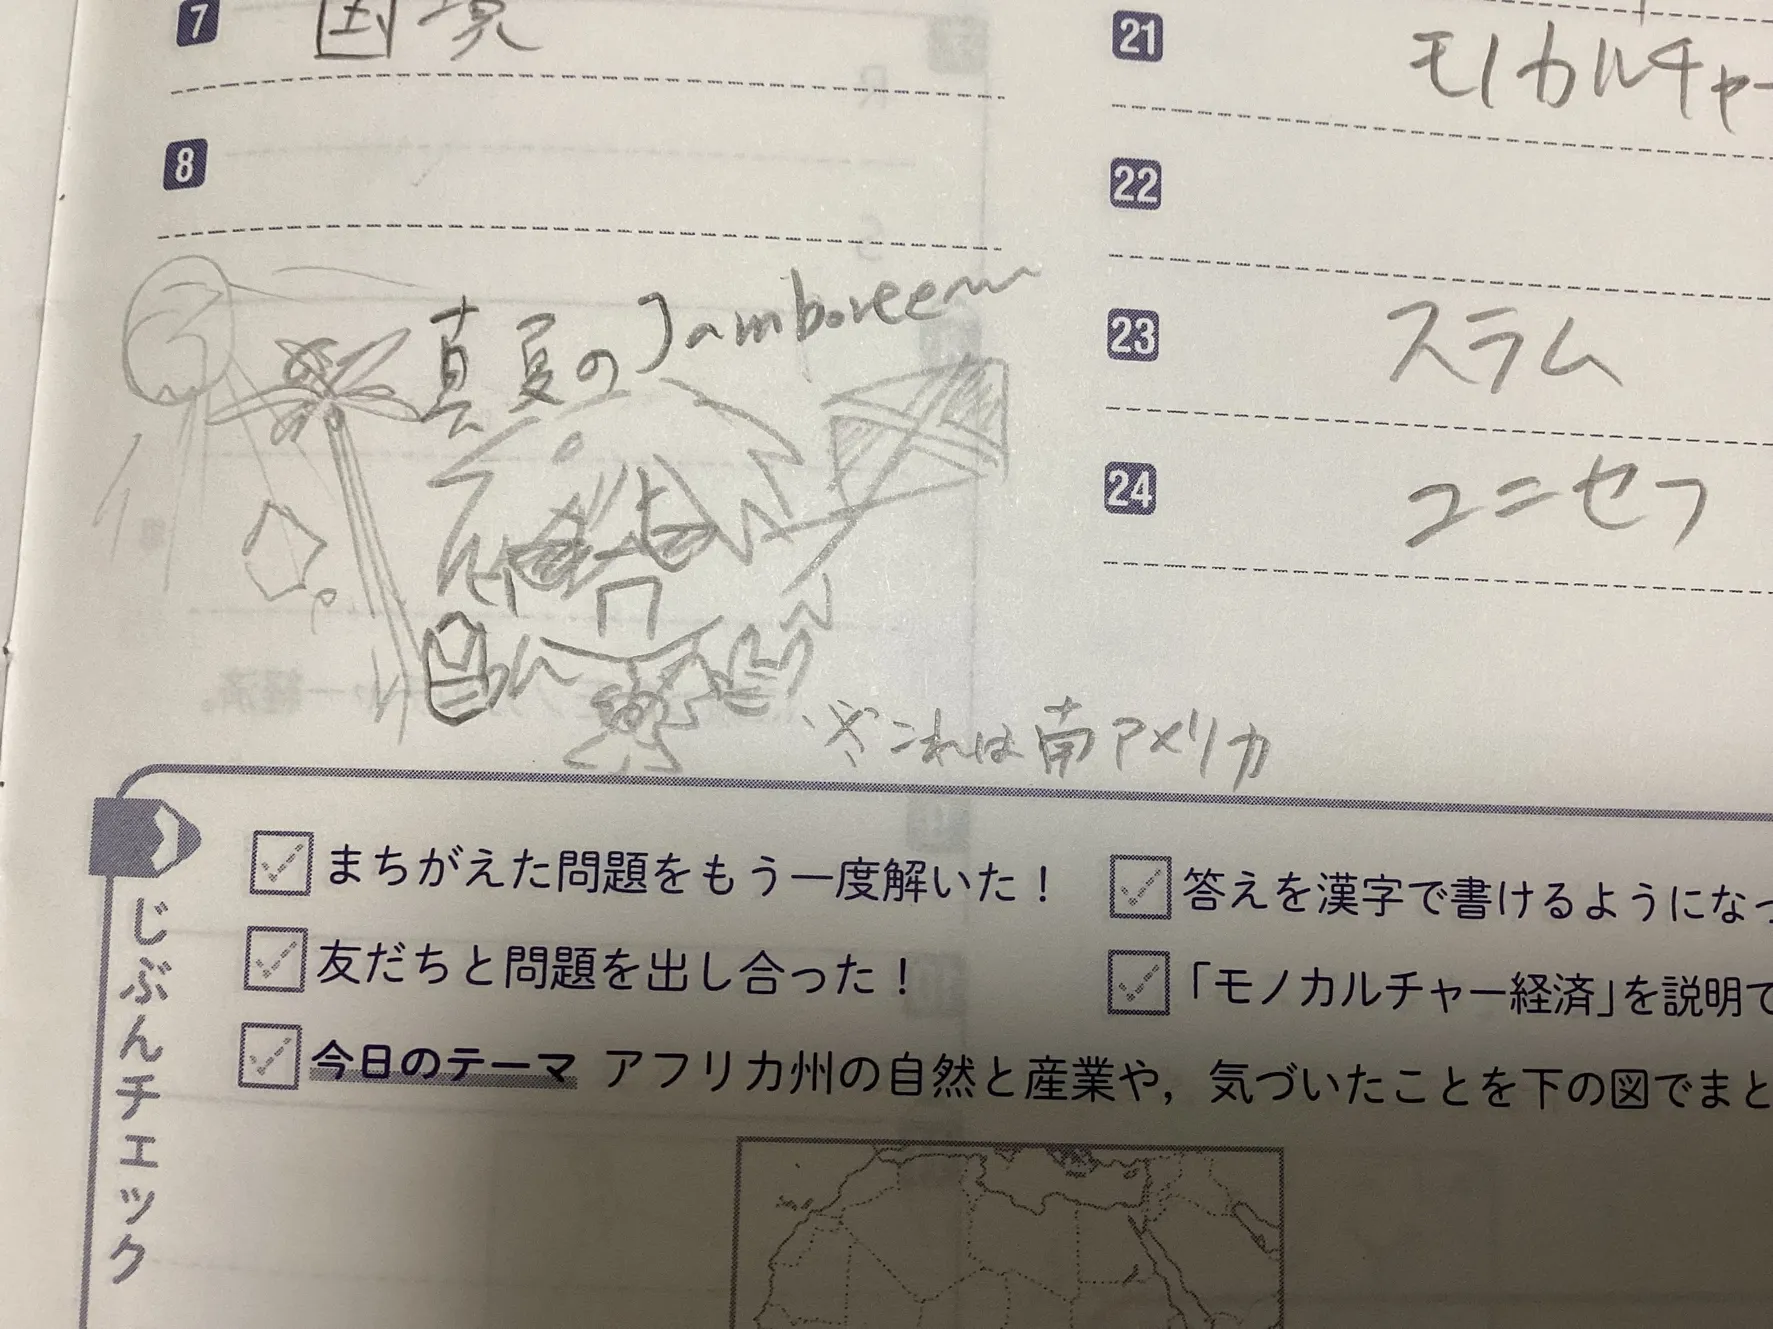 7 国境
8
真夏のJamboree〜
※これは南アメリカ
21 モノカルチャー
22
23 スラム
24 ユニセフ
じぶんチェック
まちがえた問題をもう一度解いた！
友だちと問題を出し合った！
今日のテーマ アフリカ州の自然と産業や，気づいたことを下の図でまと
答えを漢字で書けるようになっ
「モノカルチャー経済」を説明で